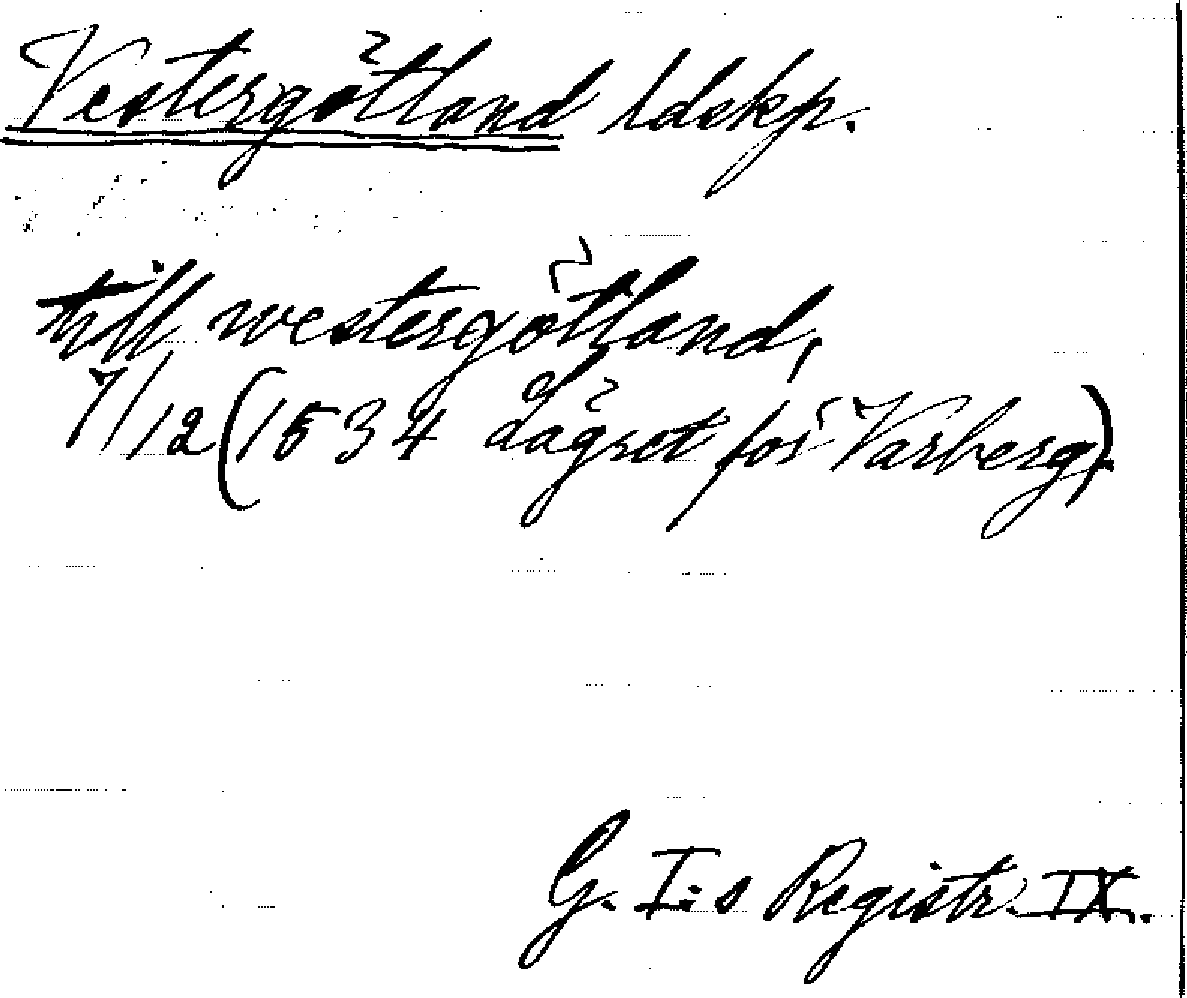 Vestergötland ldskp.
till westergötland,
7/12 (1534 Lägret för Varberg).
G. I:s Registr. IX.